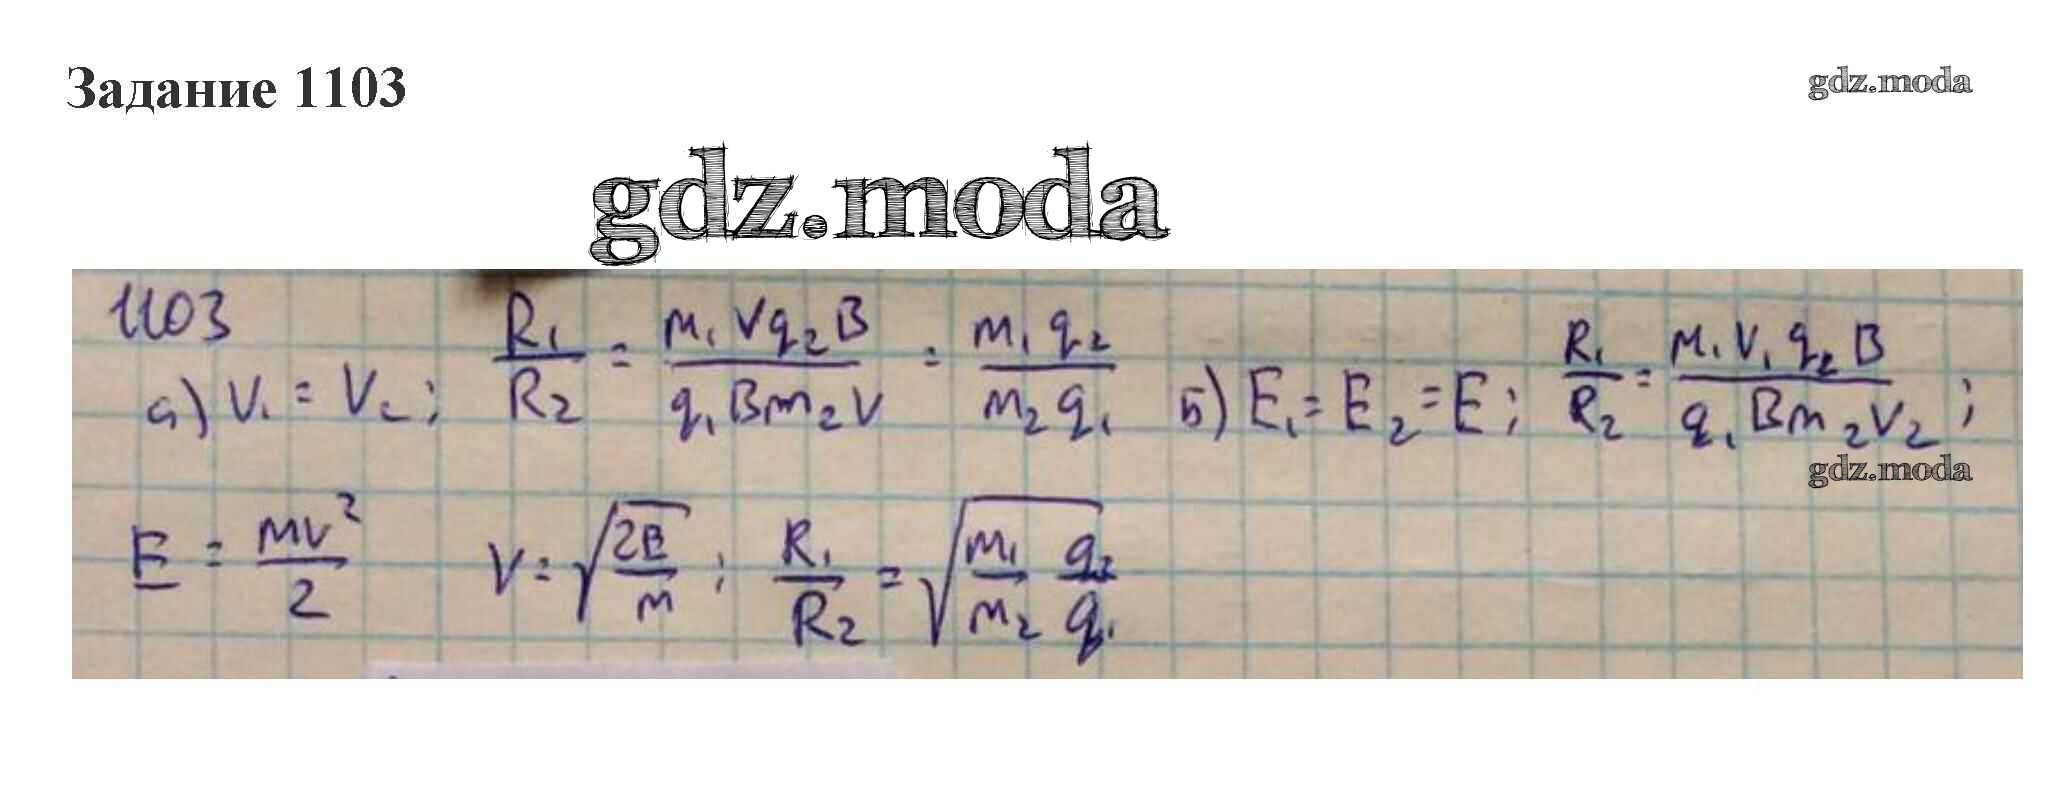 Задание 1103
gdz.moda
gdz.moda
1103
а) V₁ = V₂; R₁/R₂ = m₁Vq₂B/q₁Bm₂V = m₁q₂/m₂q₁ Б) E₁ = E₂ = E; R₁/R₂ = m₁V₁q₂B/q₁Bm₂V₂;
gdz.moda
E = mv²/2 V = √(2E/m); R₁/R₂ = √(m₁/m₂ q₂/q₁)